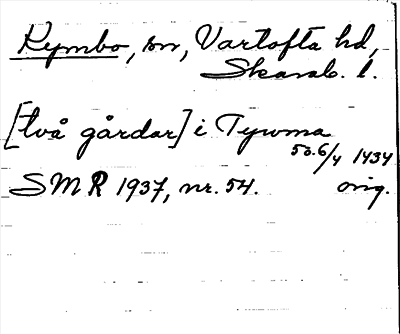 Kymbo, sn, Vartofta hd,
Skarab. l.
[två gårdar] i Tywma
50. 6/4 1434
SMR 1937, nr. 54. orig.